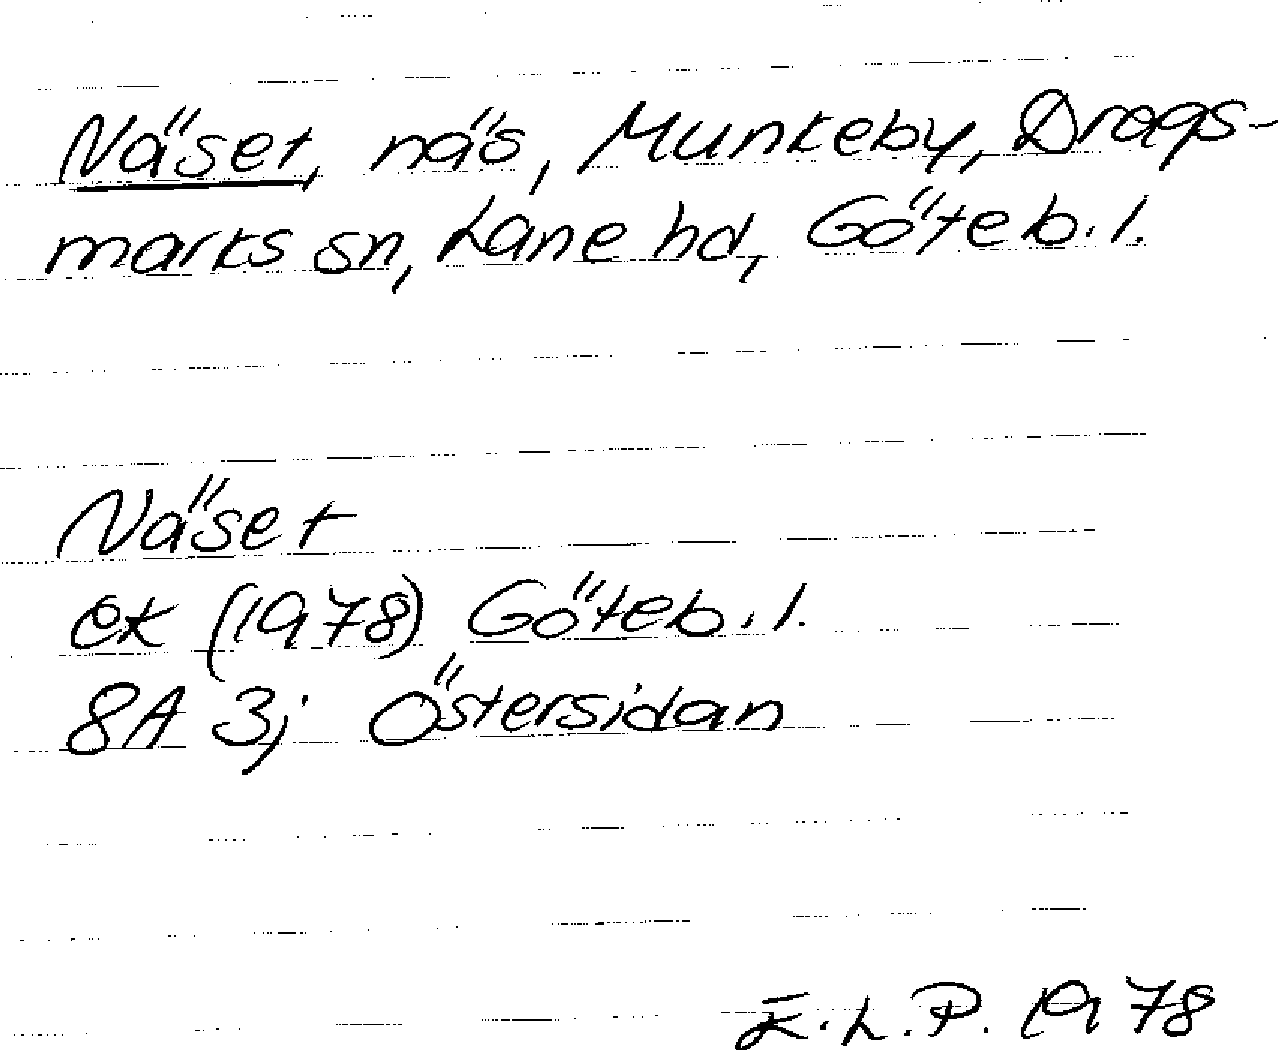 Näset, näs, Munkeby, Drags-
marks sn, Lane hd, Göteb.l.
Näset
ek (1978) Göteb.l.
8A 3j Östersidan
E.L.P. 1978